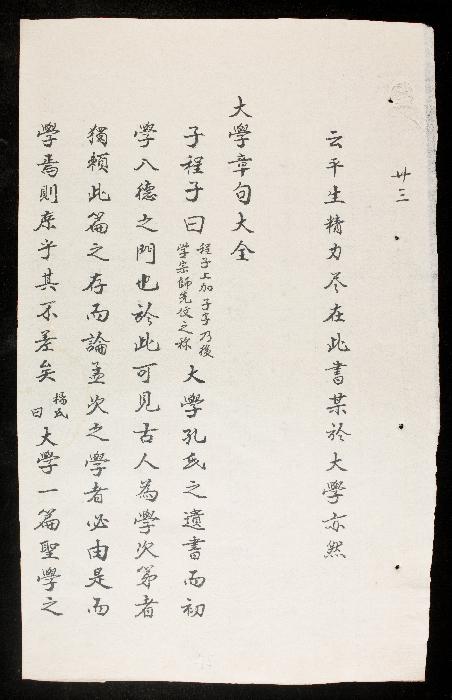 卅三
云平生精力尽在此書某於大學亦然
大學章句大全
子程子曰程子上加子字乃後学宗師先伩之称大學孔氏之遺書而初
學入德之門也於此可見古人為學次第者
獨賴此篇之存而論孟次之學者必由是而
學焉則庶乎其不差矣楊氏曰大學一篇聖學之